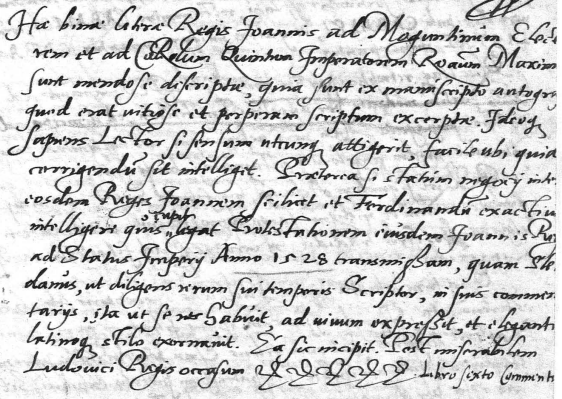 Hæ binæ literæ Regis Joannis ad Moguntinum Elect
rem et ad Carolum Quintum Imperatorem Roãum Maxim
sunt mendose descriptæ, quia sunt ex manuscripto autogra
quod erat vitiose et perperam scriptum excerptæ. Ideoq
sapiens Lector si sensum utcunq attigerit, facile ubi quid
corrigendũ sit intelliget. Præterea si statum negocij inte
eosdem Reges Joannem scilicet et Ferdinandũ exactiu
intelligere quis cupit legat Protestationem eiusdem Joannis Re
ad Status Imperij Anno 1528 transmissam, quam Sle
danus, ut diligens rerum sui temporis Scriptor, in suis commen
tarijs, ita ut se res habuit, ad vivum expressit, et eleganti
latinoq stilo exornavit. Ea sic incipit. Post miserabilem
Ludovici Regis occasum Libro sexto Comment